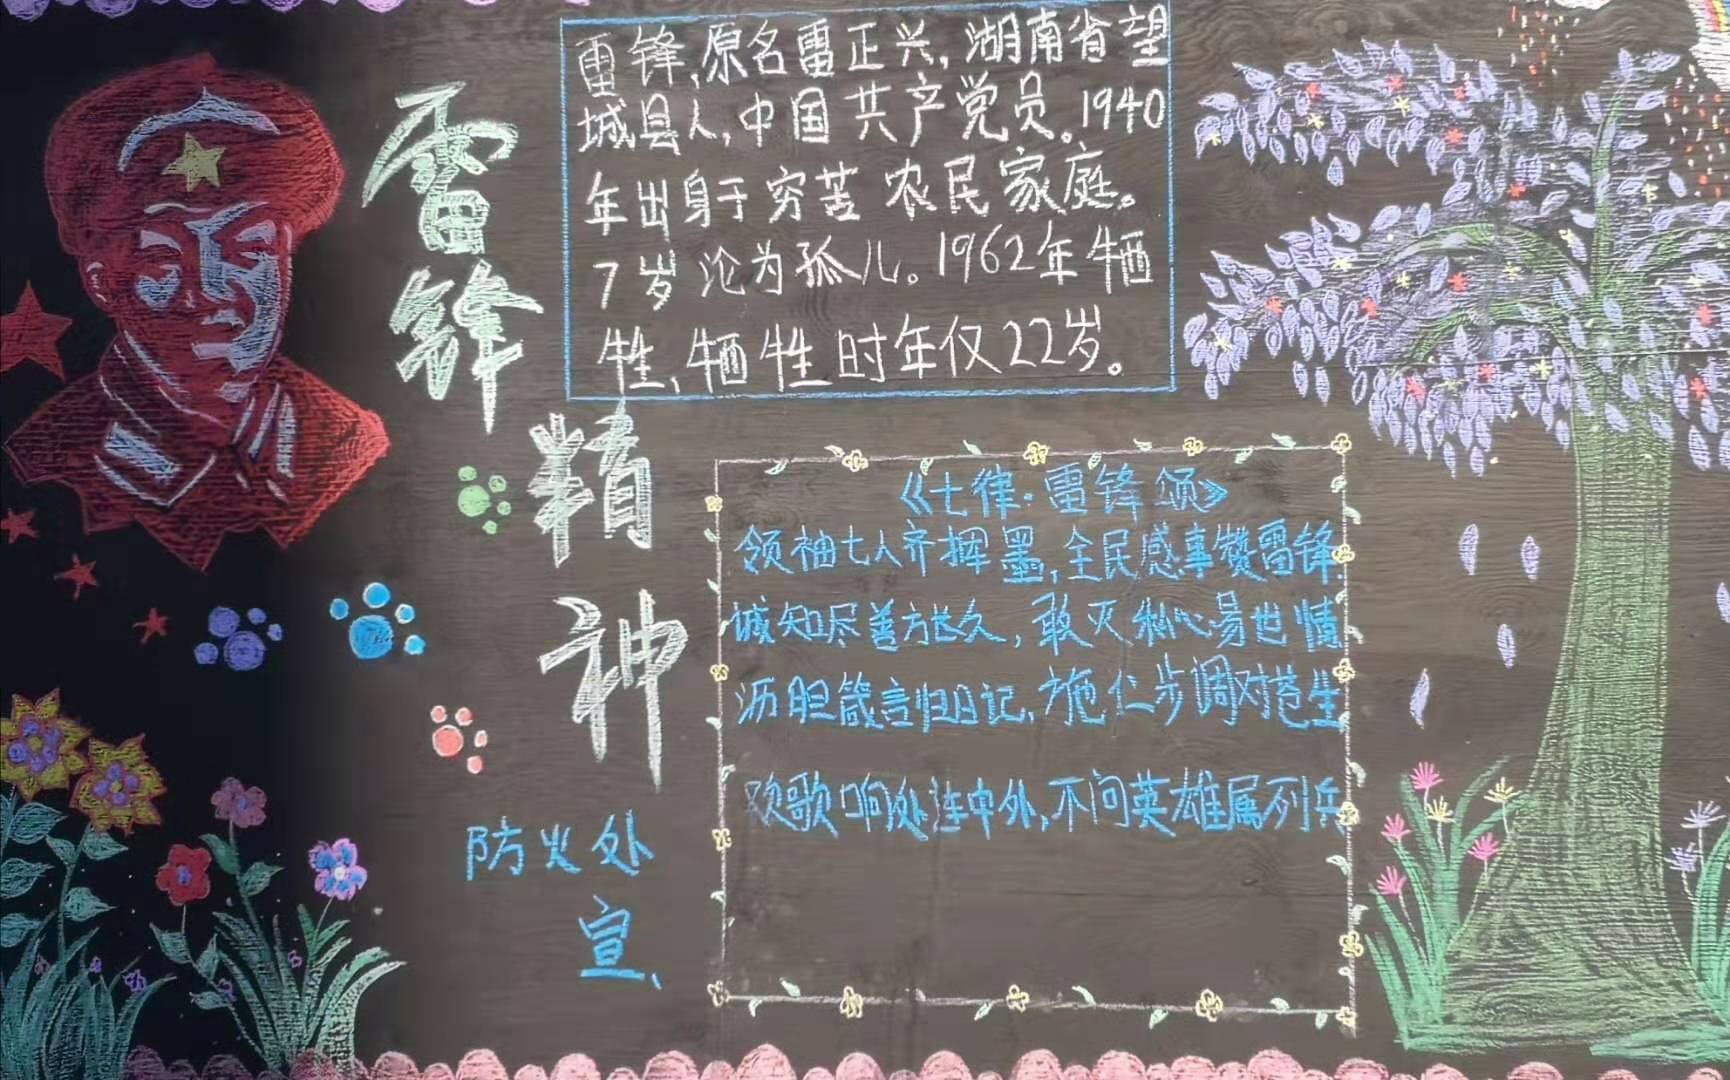 雷锋精神
雷锋,原名雷正兴,湖南省望
城县人,中国共产党员。1940
年出身于穷苦农民家庭。
7岁沦为孤儿。1962年牺
牲、牺牲时年仅22岁。
《七律·雷锋颂》
领袖七人齐挥墨,全民感事赞雷锋.
诚知尽善方长久,敢灭私心易世情
沥胆箴言归日记,施仁步调对苍生
欢歌响处连中外,不问英雄属列兵
防火处
宣、